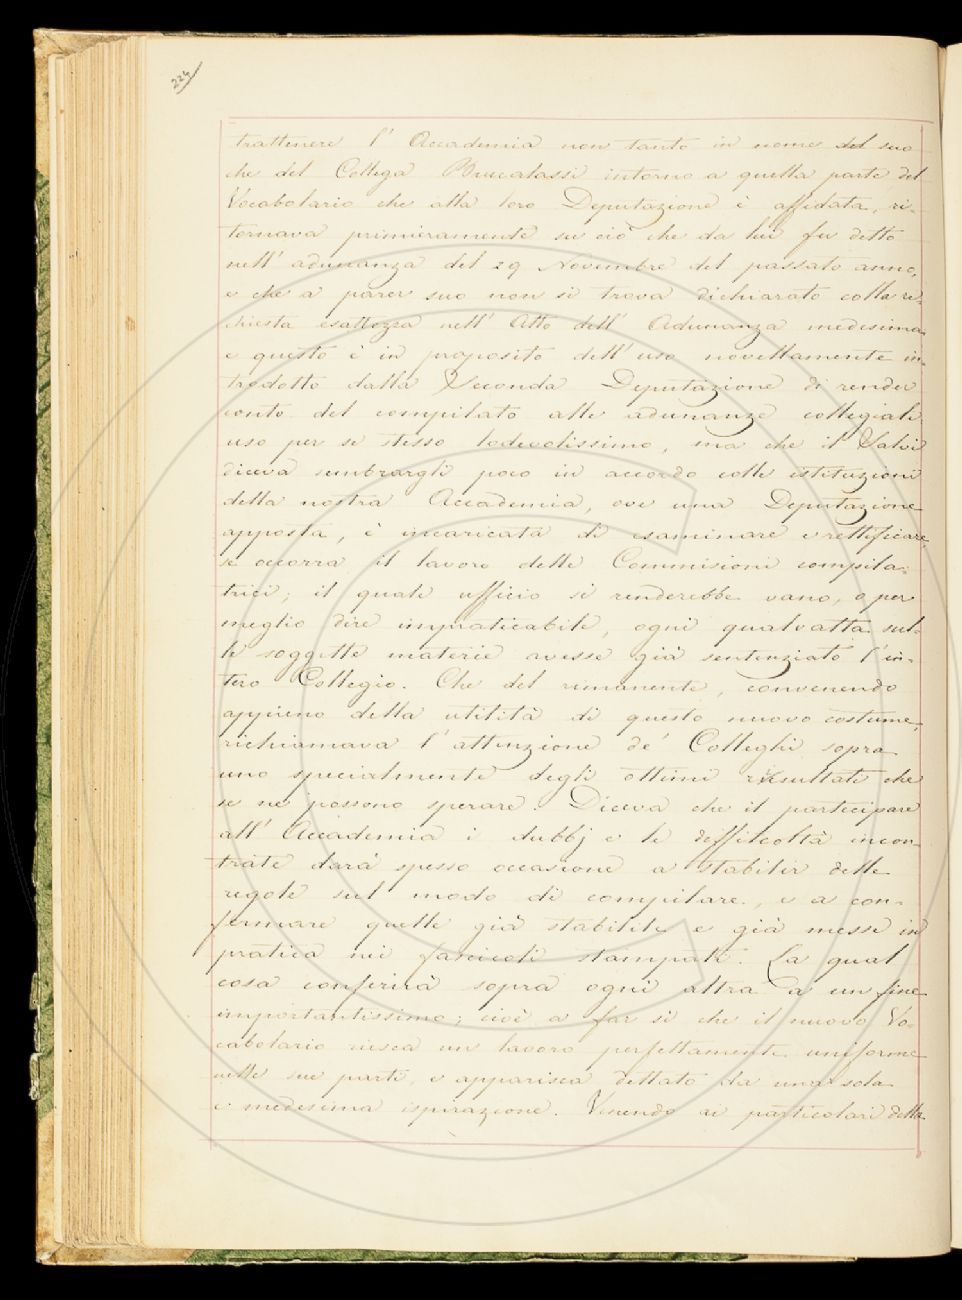 224
trattenere l' Accademia non tanto in nome del suo
che del Collega Brucalassi intorno a quella parte del
Vocabolario che alla loro Deputazione è affidata, ri-
tornava primieramente su ciò che da lui fu detto
nell' adunanza del 29 Novembre del passato anno,
e che a parer suo non si trova dichiarato colla ri-
chiesta esattezza nell' Atto dell' Adunanza medesima
e questo è in proposito dell' uso novellamente in-
trodotto dalla Seconda Deputazione di render
conto del compilato alle adunanze collegiali
uso per se stesso lodevolissimo, ma che il Salvi
diceva sembrargli poco in accordo colle istituzioni
della nostra Accademia, ove una Deputazione
apposta, è incaricata di esaminare e rettificare,
se occorra il lavoro delle Commisioni compila-
trici; il quale ufficio si renderebbe vano, o per
meglio dire impraticabile, ogni qualvolta sul-
le soggette materie avesse già sentenziato l'in-
tero Collegio. Che del rimanente, convenendo
appieno della utilità di questo nuovo costume,
richiamava l' attenzione de' Colleghi sopra
uno specialmente degli ottimi resultati che
se ne possono sperare. Diceva che il participare
all' Accademia i dubbj e le difficoltà incon-
trate darà spesso occasione a stabilir delle
regole sul modo di compilare, e a con-
fermare quelle già stabilite e già messe in
pratica nei fascicoli stampati. La qual
cosa conferirà sopra ogni altra a un fine
importantissimo; cioè a far sì che il nuovo Vo-
cabolario riesca un lavoro perfettamente uniforme
nelle sue parti, e apparisca dettato da una sola
e medesima ispirazione. Venendo ai particolari della